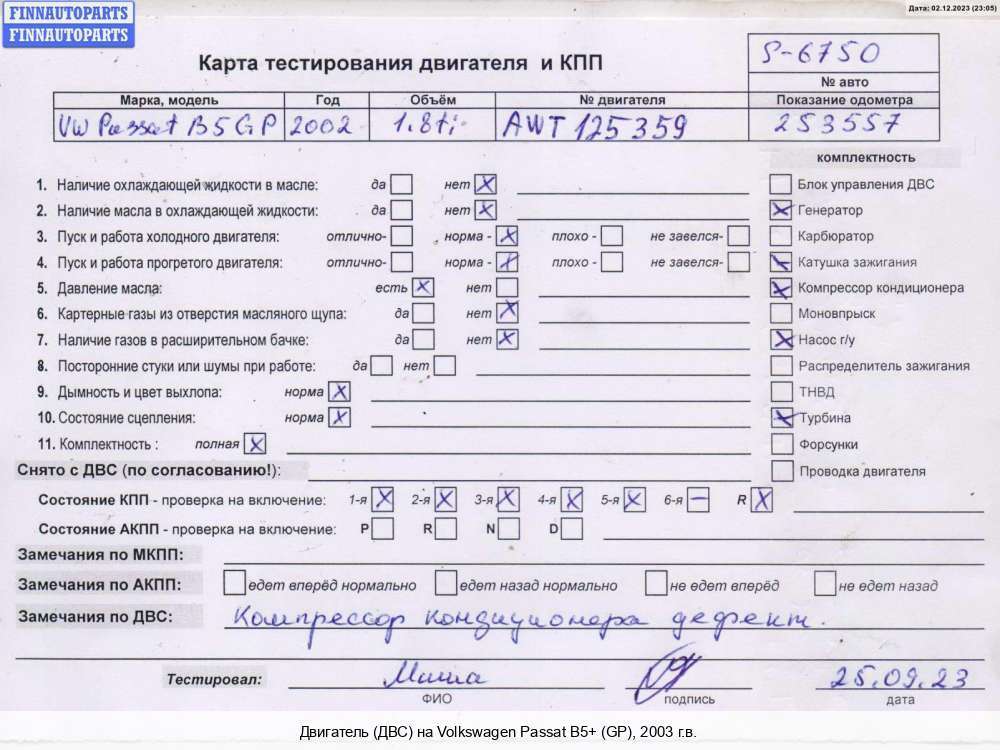 FINNAUTOPARTS
FINNAUTOPARTS
Дата: 02.12.2023 (23:05)
Карта тестирования двигателя и КПП
S-6750
№ авто
Марка, модель Год Объём № двигателя Показание одометра
VW Passat B5 GP 2002 1.8ti AWT 125359 253557
комплектность
1. Наличие охлаждающей жидкости в масле: да нет X Блок управления ДВС
2. Наличие масла в охлаждающей жидкости: да нет X X Генератор
3. Пуск и работа холодного двигателя: отлично- норма - X плохо - не завелся- Карбюратор
4. Пуск и работа прогретого двигателя: отлично- норма - X плохо - не завелся- X Катушка зажигания
5. Давление масла: есть X нет X Компрессор кондиционера
6. Картерные газы из отверстия масляного щупа: да нет X Моновпрыск
7. Наличие газов в расширительном бачке: да нет X X Насос г/у
8. Посторонние стуки или шумы при работе: да нет Распределитель зажигания
9. Дымность и цвет выхлопа: норма X ТНВД
10. Состояние сцепления: норма X X Турбина
11. Комплектность : полная X Форсунки
Снято с ДВС (по согласованию!): Проводка двигателя
Состояние КПП - проверка на включение: 1-я X 2-я X 3-я X 4-я X 5-я X 6-я – R X
Состояние АКПП - проверка на включение: P R N D
Замечания по МКПП:
Замечания по АКПП: едет вперёд нормально едет назад нормально не едет вперёд не едет назад
Замечания по ДВС: Компрессор кондиционера дефект.
Тестировал: Миша 25.09.23
ФИО подпись дата
Двигатель (ДВС) на Volkswagen Passat B5+ (GP), 2003 г.в.